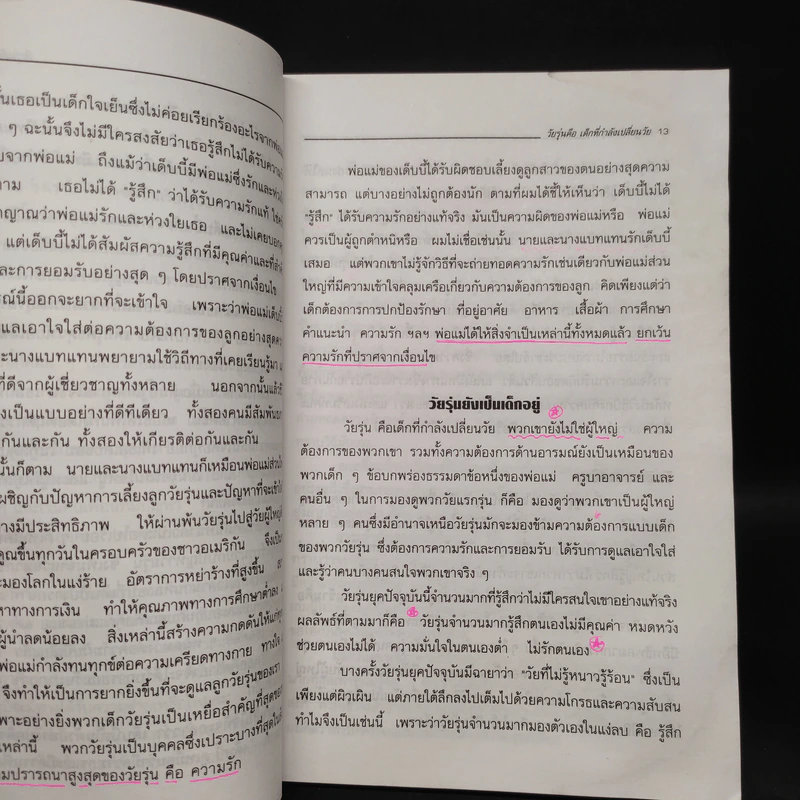 ั้นเธอเป็นเด็กใจเย็นซึ่งไม่ค่อยเรียกร้องอะไรจากพ่อแม่
ๆ ฉะนั้นจึงไม่มีใครสงสัยว่าเธอรู้สึกไม่ได้รับความ
จากพ่อแม่ ถึงแม้ว่าเด็บบี้มีพ่อแม่ซึ่งรักและห่วง
ตาม เธอไม่ได้ "รู้สึก" ว่าได้รับความรักแท้
ว่าพ่อแม่รักและห่วงใยเธอ และไม่เคยบอก
แต่เด็บบี้ไม่ได้สัมผัสความรู้สึกที่มีคุณค่าและที่
และการยอมรับอย่างสุด ๆ โดยปราศจากเงื่อนไข
นี้ออกจะยากที่จะเข้าใจ เพราะว่าพ่อแม่เด็บบี้
แลเอาใจใส่ต่อความต้องการของลูกอย่างสุดความ
และนางแบทแทนพยายามใช้วิธีทางที่เคยเรียนรู้มา
ที่ดีจากผู้เชี่ยวชาญทั้งหลาย นอกจากนั้นแล้ว
เป็นแบบอย่างที่ดีทีเดียว ทั้งสองคนมีสัมพันธ
กันและกัน ทั้งสองให้เกียรติต่อกันและกัน
นั้นก็ตาม นายและนางแบทแทนก็เหมือนพ่อแม่ส่วน
เผชิญกับปัญหาการเลี้ยงลูกวัยรุ่นและปัญหาที่จะ
มีประสิทธิภาพ ให้ผ่านพ้นวัยรุ่นไปสู่วัยผู้ใหญ่
คูณขึ้นทุกวันในครอบครัวของชาวอเมริกัน จึงเป็น
มองโลกในแง่ร้าย อัตราการหย่าร้างที่สูงขึ้น
ทางการเงิน ทำให้คุณภาพทางการศึกษาต่ำลง
ผู้นำลดน้อยลง สิ่งเหล่านี้สร้างความกดดันให้แก่
พ่อแม่กำลังทนทุกข์ต่อความเครียดทางกาย ทางใจ
จึงทำให้เป็นการยากยิ่งขึ้นที่จะดูแลลูกวัยรุ่นของเรา
เพาะอย่างยิ่งพวกเด็กวัยรุ่นเป็นเหยื่อสำคัญที่สุดของ
เหล่านี้ พวกวัยรุ่นเป็นบุคคลซึ่งเปราะบางที่สุดใน
ปรารถนาสูงสุดของวัยรุ่น คือ ความรัก
วัยรุ่นคือ เด็กที่กำลังเปลี่ยนวัย 13
พ่อแม่ของเด็บบี้ได้รับผิดชอบเลี้ยงดูลูกสาวของตนอย่างสุดความ
สามารถ แต่บางอย่างไม่ถูกต้องนัก ตามที่ผมได้ชี้ให้เห็นว่า เด็บบี้ไม่ได้
"รู้สึก" ได้รับความรักอย่างแท้จริง มันเป็นความผิดของพ่อแม่หรือ พ่อแม่
ควรเป็นผู้ถูกตำหนิหรือ ผมไม่เชื่อเช่นนั้น นายและนางแบทแทนรักเด็บบี้
เสมอ แต่พวกเขาไม่รู้จักวิธีที่จะถ่ายทอดความรักเช่นเดียวกับพ่อแม่ส่วน
ใหญ่ที่มีความเข้าใจคลุมเครือเกี่ยวกับความต้องการของลูก คิดเพียงแต่ว่า
เด็กต้องการการปกป้องรักษา ที่อยู่อาศัย อาหาร เสื้อผ้า การศึกษา
คำแนะนำ ความรัก ฯลฯ พ่อแม่ได้ให้สิ่งจำเป็นเหล่านี้ทั้งหมดแล้ว ยกเว้น
ความรักที่ปราศจากเงื่อนไข
วัยรุ่นยังเป็นเด็กอยู่
วัยรุ่น คือเด็กที่กำลังเปลี่ยนวัย พวกเขายังไม่ใช่ผู้ใหญ่ ความ
ต้องการของพวกเขา รวมทั้งความต้องการด้านอารมณ์ยังเป็นเหมือนของ
พวกเด็ก ๆ ข้อบกพร่องธรรมดาข้อหนึ่งของพ่อแม่ ครูบาอาจารย์ และ
คนอื่น ๆ ในการมองดูพวกวัยแรกรุ่น ก็คือ มองดูว่าพวกเขาเป็นผู้ใหญ่
หลาย ๆ คนซึ่งมีอำนาจเหนือวัยรุ่นมักจะมองข้ามความต้องการแบบเด็ก
ของพวกวัยรุ่น ซึ่งต้องการความรักและการยอมรับ ได้รับการดูแลเอาใจใส่
และรู้ว่าคนบางคนสนใจพวกเขาจริง ๆ
วัยรุ่นยุคปัจจุบันนี้จำนวนมากที่รู้สึกว่าไม่มีใครสนใจเขาอย่างแท้จริง
ผลลัพธ์ที่ตามมาก็คือ วัยรุ่นจำนวนมากรู้สึกตนเองไม่มีคุณค่า หมดหวัง
ช่วยตนเองไม่ได้ ความมั่นใจในตนเองต่ำ ไม่รักตนเอง
บางครั้งวัยรุ่นยุคปัจจุบันมีฉายาว่า "วัยที่ไม่รู้หนาวรู้ร้อน" ซึ่งเป็น
เพียงแต่ผิวเผิน แต่ภายใต้ลึกลงไปเต็มไปด้วยความโกรธและความสับสน
ทำไมจึงเป็นเช่นนี้ เพราะว่าวัยรุ่นจำนวนมากมองตัวเองในแง่ลบ คือ รู้สึก